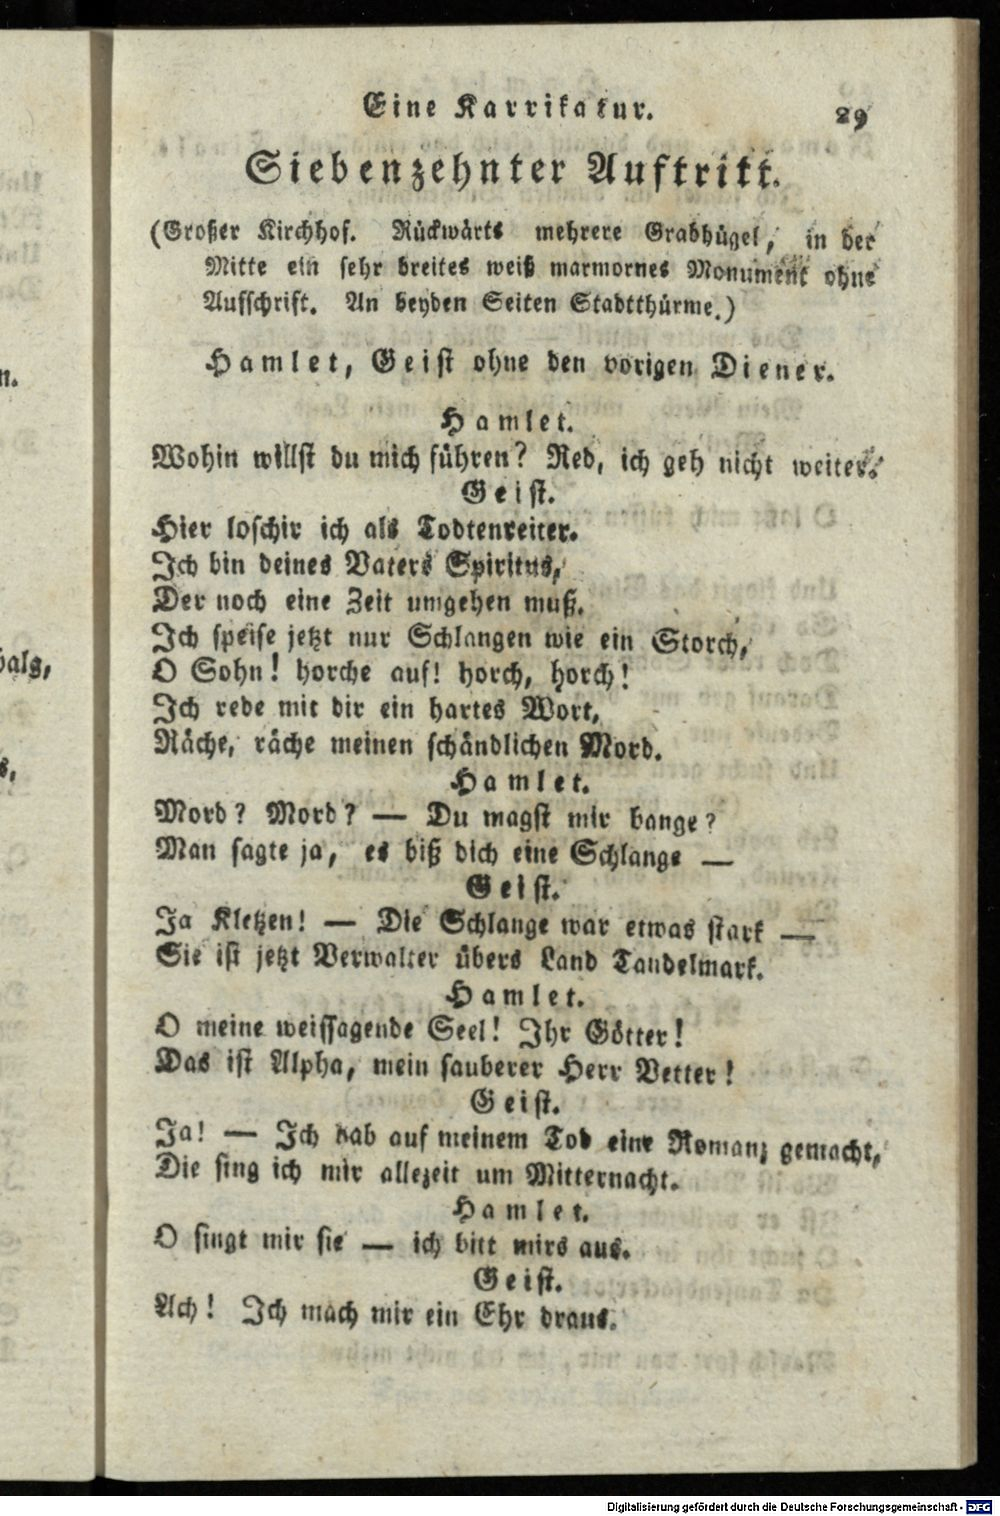 Eine Karrikatur. 29
Siebenzehnter Auftritt.
(Großer Kirchhof. Rückwärts mehrere Grabhügel, in der
Mitte ein sehr breites weiß marmornes Monument ohne
Aufschrift. An beyden Seiten Stadtthürme.)
Hamlet, Geist ohne den vorigen Diener.
Hamlet.
Wohin willst du mich führen? Red, ich geh nicht weiter.
Geist.
Hier loschir ich als Todtenreiter.
Ich bin deines Vaters Spiritus,
Der noch eine Zeit umgehen muß.
Ich speise jetzt nur Schlangen wie ein Storch,
O Sohn! horche auf! horch, horch!
Ich rede mit dir ein hartes Wort,
Räche, räche meinen schändlichen Mord.
Hamlet.
Mord? Mord? — Du magst mir bange?
Man sagte ja, es biß dich eine Schlange —
Geist.
Ja Kletzen! — Die Schlange war etwas stark —
Sie ist jetzt Verwalter übers Land Tandelmark.
Hamlet.
O meine weissagende Seel! Ihr Götter!
Das ist Alpha, mein sauberer Herr Vetter!
Geist.
Ja! — Ich hab auf meinem Tod eine Romanz gemacht,
Die sing ich mir allezeit um Mitternacht.
Hamlet.
O singt mir sie — ich bitt mirs aus.
Geist.
Ach! Ich mach mir ein Ehr draus.
n.
balg,
s,
Digitalisierung gefördert durch die Deutsche Forschungsgemeinschaft - DFG